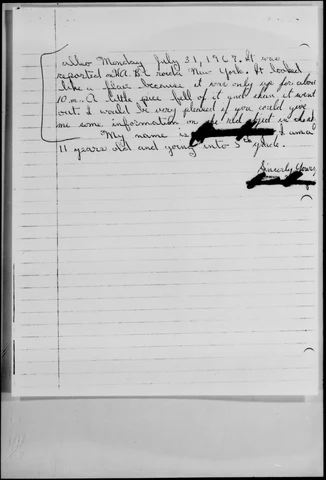 also Monday July 31, 1967. It was
reported on W.A.B.C. radio New York. It looked
like a flare because it was only up for about
10 m. A little piece fell of it and than it went
out. I would be very pleased if you could give
me some information on the red object in
My name is I am a
11 years old and going into 5th grade.
Sincerly Yours,